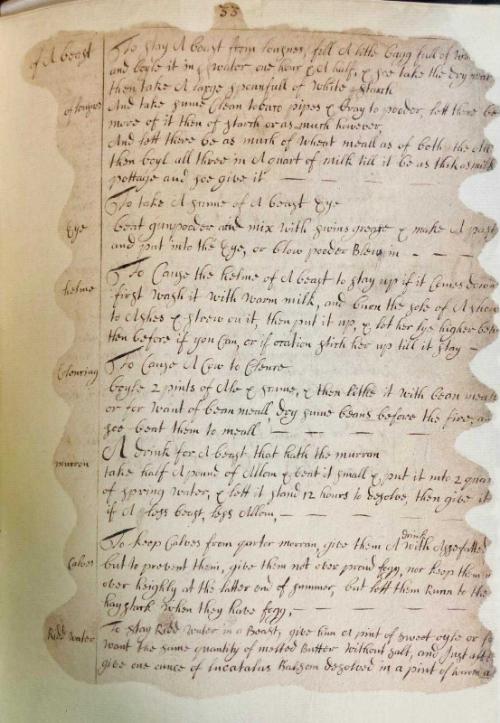 33
of A beast
To stay A beast from lousnes, fill A litle bagg full of
and boyle it in water one hour & A half, & soe take the dry
then take A large spoonfull of White starch
of lousnes And take sume Clean tobaco pipes & bray to pooder, lett there be
more of it then of starch or as much however,
And lett there be as much of wheat meall as of both, the
then boyl all three in A quart of milk till it be as thik as milk
pottage and soe give it — — —
To take A skinne of A beast Eye
Eye beat gunpooder and mix with swins grease & make A past
and put into the Eye, or blow pooder Blew in — —
To Cause the kelme of A beast to stay up if it Comes down
kelme first wash it with warm milk, and burn the sole of A shooe
to Ashes & strew on it, then put it up, & let her lye higher behind
then before if you Can, or if ocation stich her up till it stay —
Clensing To Cause A Cow to Clense
boyle 2 pints of Ale & strane, & then lithe it with bean meale
or for want of bean meall dry sume beans before the fire, and
soe beat them to meall — — —
A drink for A beast that hath the murran
murron take half A pound of Allom & beat it small & put it into 2 quarts
of spring water, & lett it stand 12 hours to desolve, then give it
if A less beast, less Allom, — — —
To keep Calves from garter morran, give them A drink with Assefatted
Calves but to prevent them, give them not over proud fogg, nor keep them
over heighly at the latter end of summer, but lett them runn to the
haystack when they have fogg, — — —
Redd Water To stay Redd water in a Beast, give him A pint of sweet oyle or for
want the same quantity of melted Butter without salt, and Just after
give one ounce of Lucatalus Balsom desolved in a pint of warm